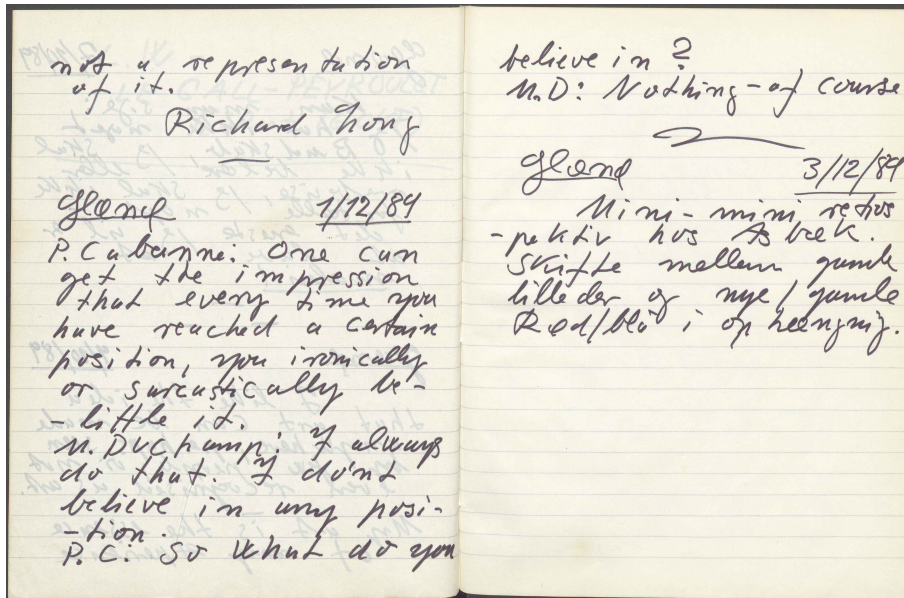 not a representation
of it.
Richard Long
Gland 1/12/89
P. Cabanne: One can
get the impression
that every time you
have reached a certain
position, you ironically
or sarcastically be-
-little it.
M. Duchamp: I always
do that. I don't
believe in any posi-
-tion.
P.C: So what do you
believe in?
M.D: Nothing - of course
Gland 3/12/89
Mini-mini retros
-pektiv hos Asbæk.
Skifte mellem gamle
billeder og nye / gamle
Rød/blå i ophængnig.